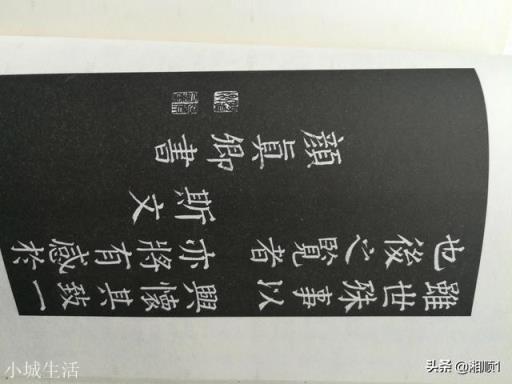 雖世殊事以興懷其致一
也後之覽者亦將有感於
斯文
顏眞卿書
小城生活
头条 @湘顺1